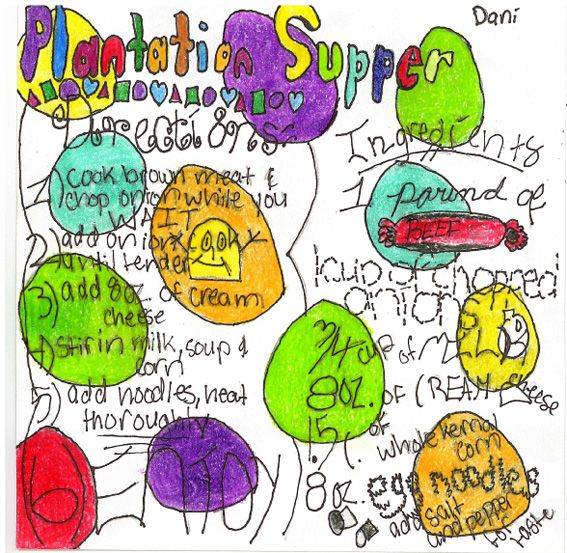 Dani
Plantation Supper
Directions:
1) cook brown meat &
chop onion while you
WAIT
2) add onion cook
until tender
3) add 8 oz. of cream
cheese
4) stir in milk, soup &
corn
5) add noodles, heat
thoroughly
Ingredients
1 pound of
BEEF
1 cup of chopped
onion
3/4 cup of MILK
8oz. of CREAM cheese
15 of
whole kernal
corn
8oz. egg noodles
add salt
and pepper
to taste